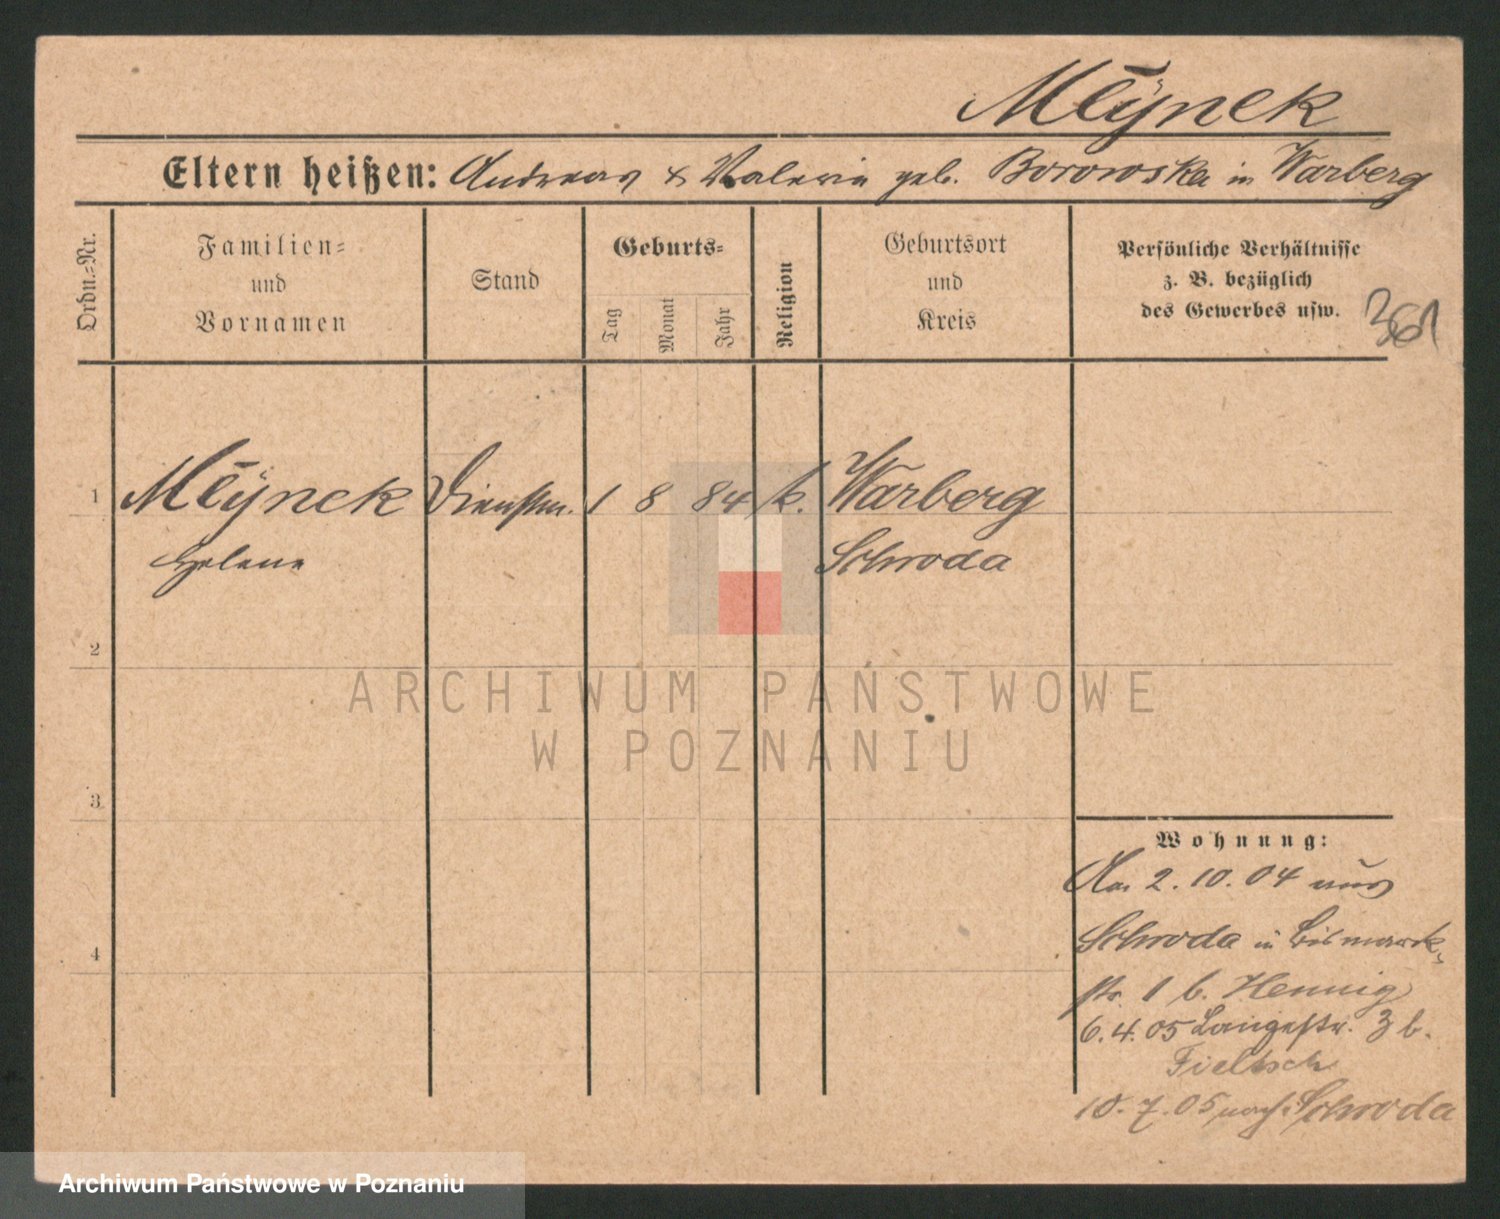 Młÿnek
Eltern heißen: Andreas & Valerie geb. Borowska in Warberg
Ordn.=Nr.
Familien=
und
Vornamen
Stand
Geburts=
Tag
Monat
Jahr
Religion
Geburtsort
und
Kreis
Persönliche Verhältnisse
z. B. bezüglich
des Gewerbes usw.
361
1 Młÿnek Dienstm. 1 8 84 k. Warberg
Helene Schroda
2
ARCHIWUM PAŃSTWOWE
W POZNANIU
3
Wohnung:
2. 10. 04 aus
4
Schroda in Bismarck-
str. 1 b. Hennig
6. 4. 05 Langestr. 3 b.
Fieltsch
10. 7. 05 nach Schroda
Archiwum Państwowe w Poznaniu